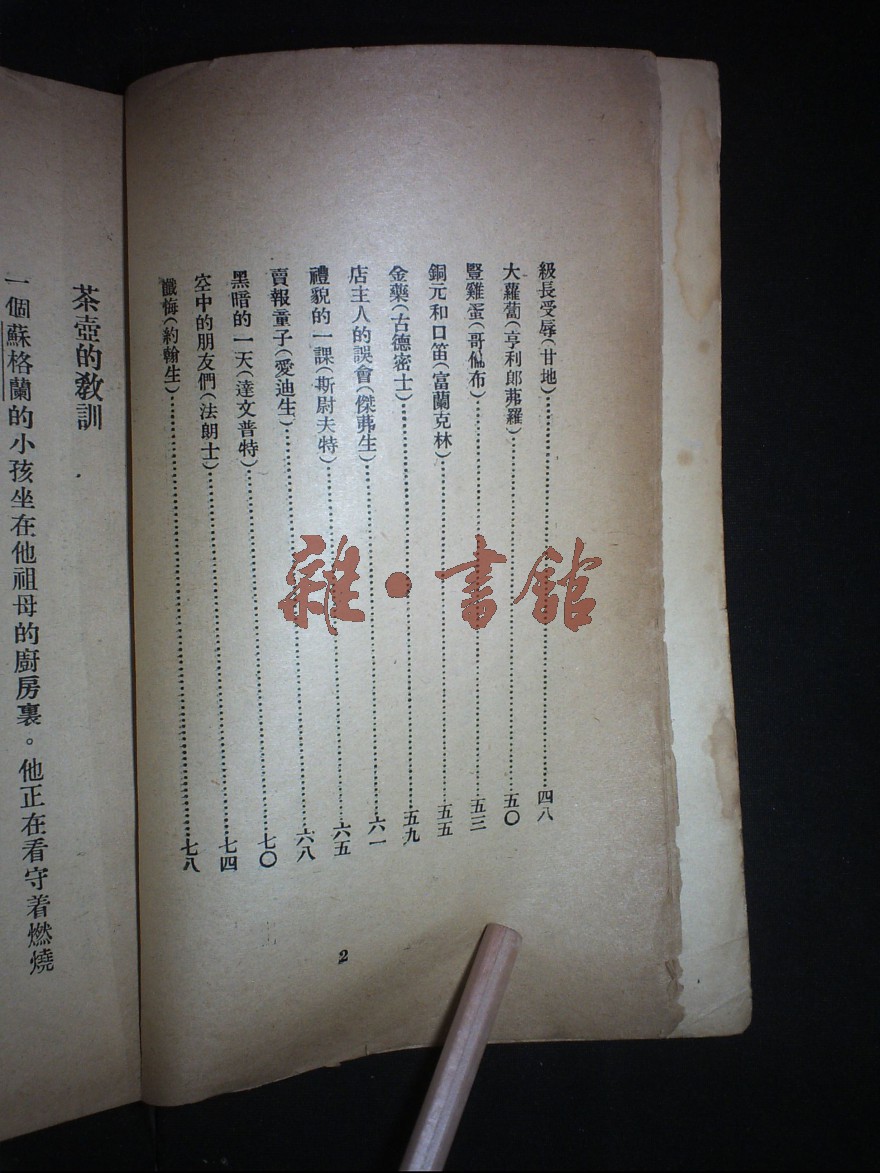 級長受辱(甘地)………四八
大蘿蔔(亨利郎弗羅)………五〇
豎雞蛋(哥倫布)………五三
銅元和口笛(富蘭克林)………五五
金藥(古德密士)………五九
店主人的誤會(傑弗生)………六一
禮貌的一課(斯尉夫特)………六五
賣報童子(愛迪生)………六八
黑暗的一天(達文普特)………七〇
空中的朋友們(法朗士)………七四
懺悔(約翰生)………七八
2
茶壺的教訓
一個蘇格蘭的小孩坐在他祖母的廚房裏。他正在看守着燃燒
雜·書館